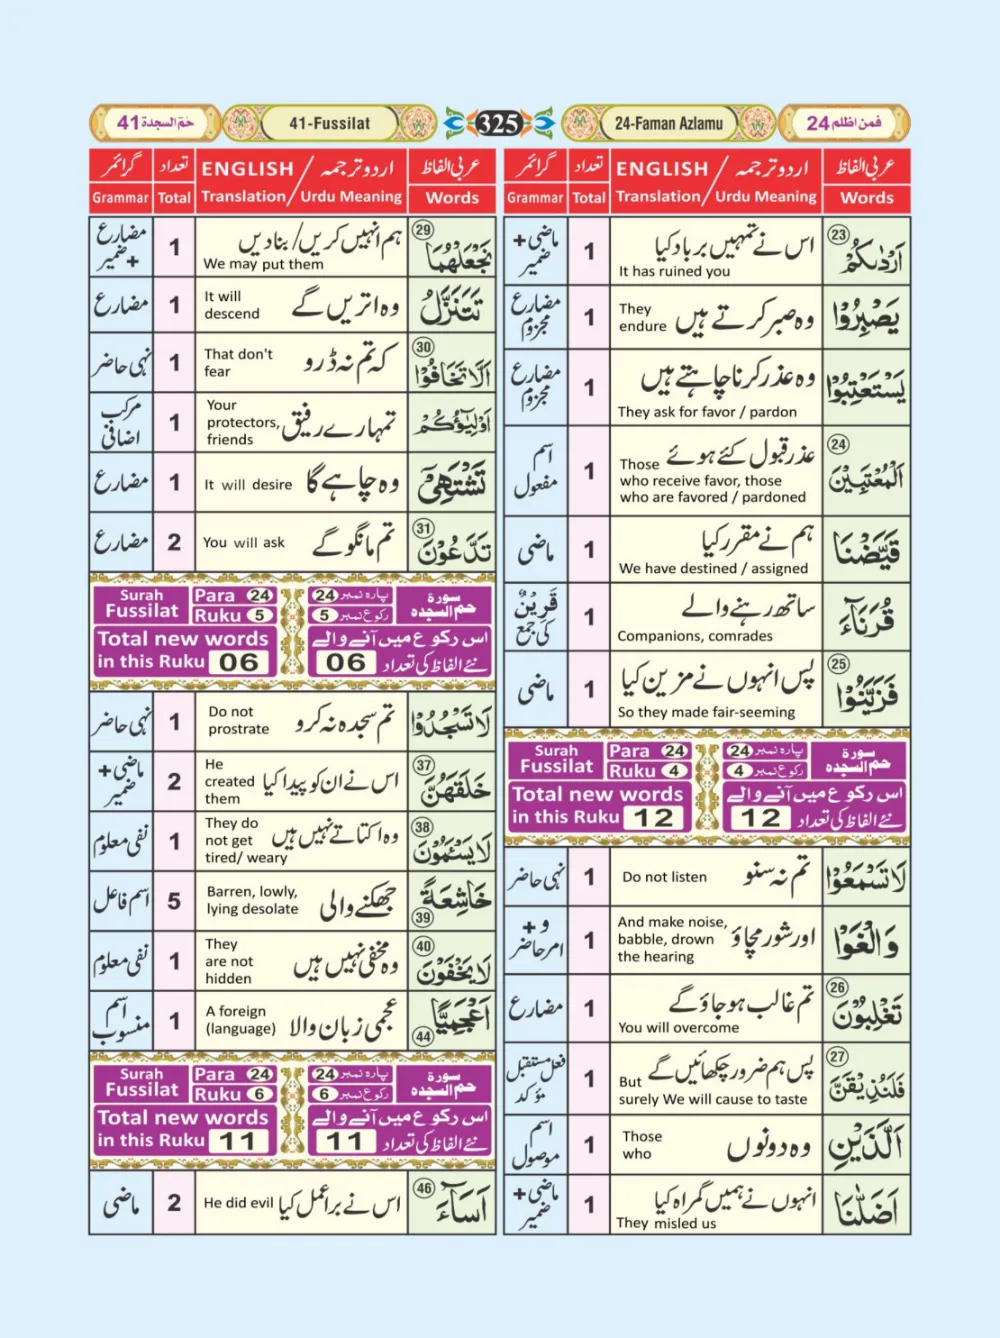 فمن اظلم 24
24-Faman Azlamu
325
41-Fussilat
حم السجدة 41
عربی الفاظ
Words
ENGLISH / اردو ترجمہ
Translation / Urdu Meaning
تعداد
Total
گرائمر
Grammar
㉓ اَرْدٰىكُمْ
اس نے تمہیں برباد کیا
It has ruined you
1
ماضی + ضمیر
يَصْبِرُوْا
وہ صبر کرتے ہیں
They endure
1
مضارع مجزوم
يَسْتَعْتِبُوْا
وہ عذر کرنا چاہتے ہیں
They ask for favor / pardon
1
مضارع مجزوم
㉔ اَلْمُعْتَبِيْنَ
عذر قبول کئے ہوئے
Those who receive favor, those who are favored / pardoned
1
اسم مفعول
قَيَّضْنَا
ہم نے مقرر کیا
We have destined / assigned
1
ماضی
قُرَنَآءَ
ساتھ رہنے والے
Companions, comrades
1
قَرِيْنٌ کی جمع
㉕ فَزَيَّنُوْا
پس انہوں نے مزین کیا
So they made fair-seeming
1
ماضی
Surah Fussilat
Para 24
Ruku 4
پارہ نمبر 24
رکوع نمبر 4
سورة حم السجدہ
Total new words in this Ruku 12
اس رکوع میں آنے والے نئے الفاظ کی تعداد 12
لَا تَسْمَعُوْا
تم نہ سنو
Do not listen
1
نہی حاضر
وَالْغَوْا
اور شور مچاؤ
And make noise, babble, drown the hearing
1
و + امر حاضر
㉖ تَغْلِبُوْنَ
تم غالب ہو جاؤ گے
You will overcome
1
مضارع
㉗ فَلَنُذِيْقَنَّ
پس ہم ضرور چکھائیں گے
But surely We will cause to taste
1
فعل مستقبل مؤکد
اَلَّذَيْنِ
وہ دونوں
Those who
1
اسم موصول
اَضَلّٰنَا
انہوں نے ہمیں گمراہ کیا
They misled us
1
ماضی + ضمیر
عربی الفاظ
Words
ENGLISH / اردو ترجمہ
Translation / Urdu Meaning
تعداد
Total
گرائمر
Grammar
㉙ نَجْعَلْهُمَا
ہم انہیں کریں / بنا دیں
We may put them
1
مضارع + ضمیر
تَتَنَزَّلُ
وہ اتریں گے
It will descend
1
مضارع
㉚ اَلَّا تَخَافُوْا
کہ تم نہ ڈرو
That don't fear
1
نہی حاضر
اَوْلِيٰٓؤُكُمْ
تمہارے رفیق
Your protectors, friends
1
مرکب اضافی
تَشْتَهِىْٓ
وہ چاہے گا
It will desire
1
مضارع
㉛ تَدَّعُوْنَ
تم مانگو گے
You will ask
2
مضارع
Surah Fussilat
Para 24
Ruku 5
پارہ نمبر 24
رکوع نمبر 5
سورة حم السجدہ
Total new words in this Ruku 06
اس رکوع میں آنے والے نئے الفاظ کی تعداد 06
لَا تَسْجُدُوْا
تم سجدہ نہ کرو
Do not prostrate
1
نہی حاضر
㊲ خَلَقَهُنَّ
اس نے ان کو پیدا کیا
He created them
2
ماضی + ضمیر
㊳ لَا يَسْـَٔمُوْنَ
وہ اکتاتے نہیں ہیں
They do not get tired/ weary
1
نفی معلوم
خَاشِعَةً ㊴
جھکنے والی
Barren, lowly, lying desolate
5
اسم فاعل
㊵ لَا يَخْفَوْنَ
وہ مخفی نہیں ہیں
They are not hidden
1
نفی معلوم
اَعْجَمِيًّا ㊹
عجمی زبان والا
A foreign (language)
1
اسم منسوب
Surah Fussilat
Para 24
Ruku 6
پارہ نمبر 24
رکوع نمبر 6
سورة حم السجدہ
Total new words in this Ruku 11
اس رکوع میں آنے والے نئے الفاظ کی تعداد 11
㊻ اَسَآءَ
اس نے برا عمل کیا
He did evil
2
ماضی